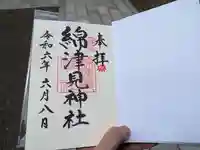 奉拝
綿津見神社
令和六年六月八日